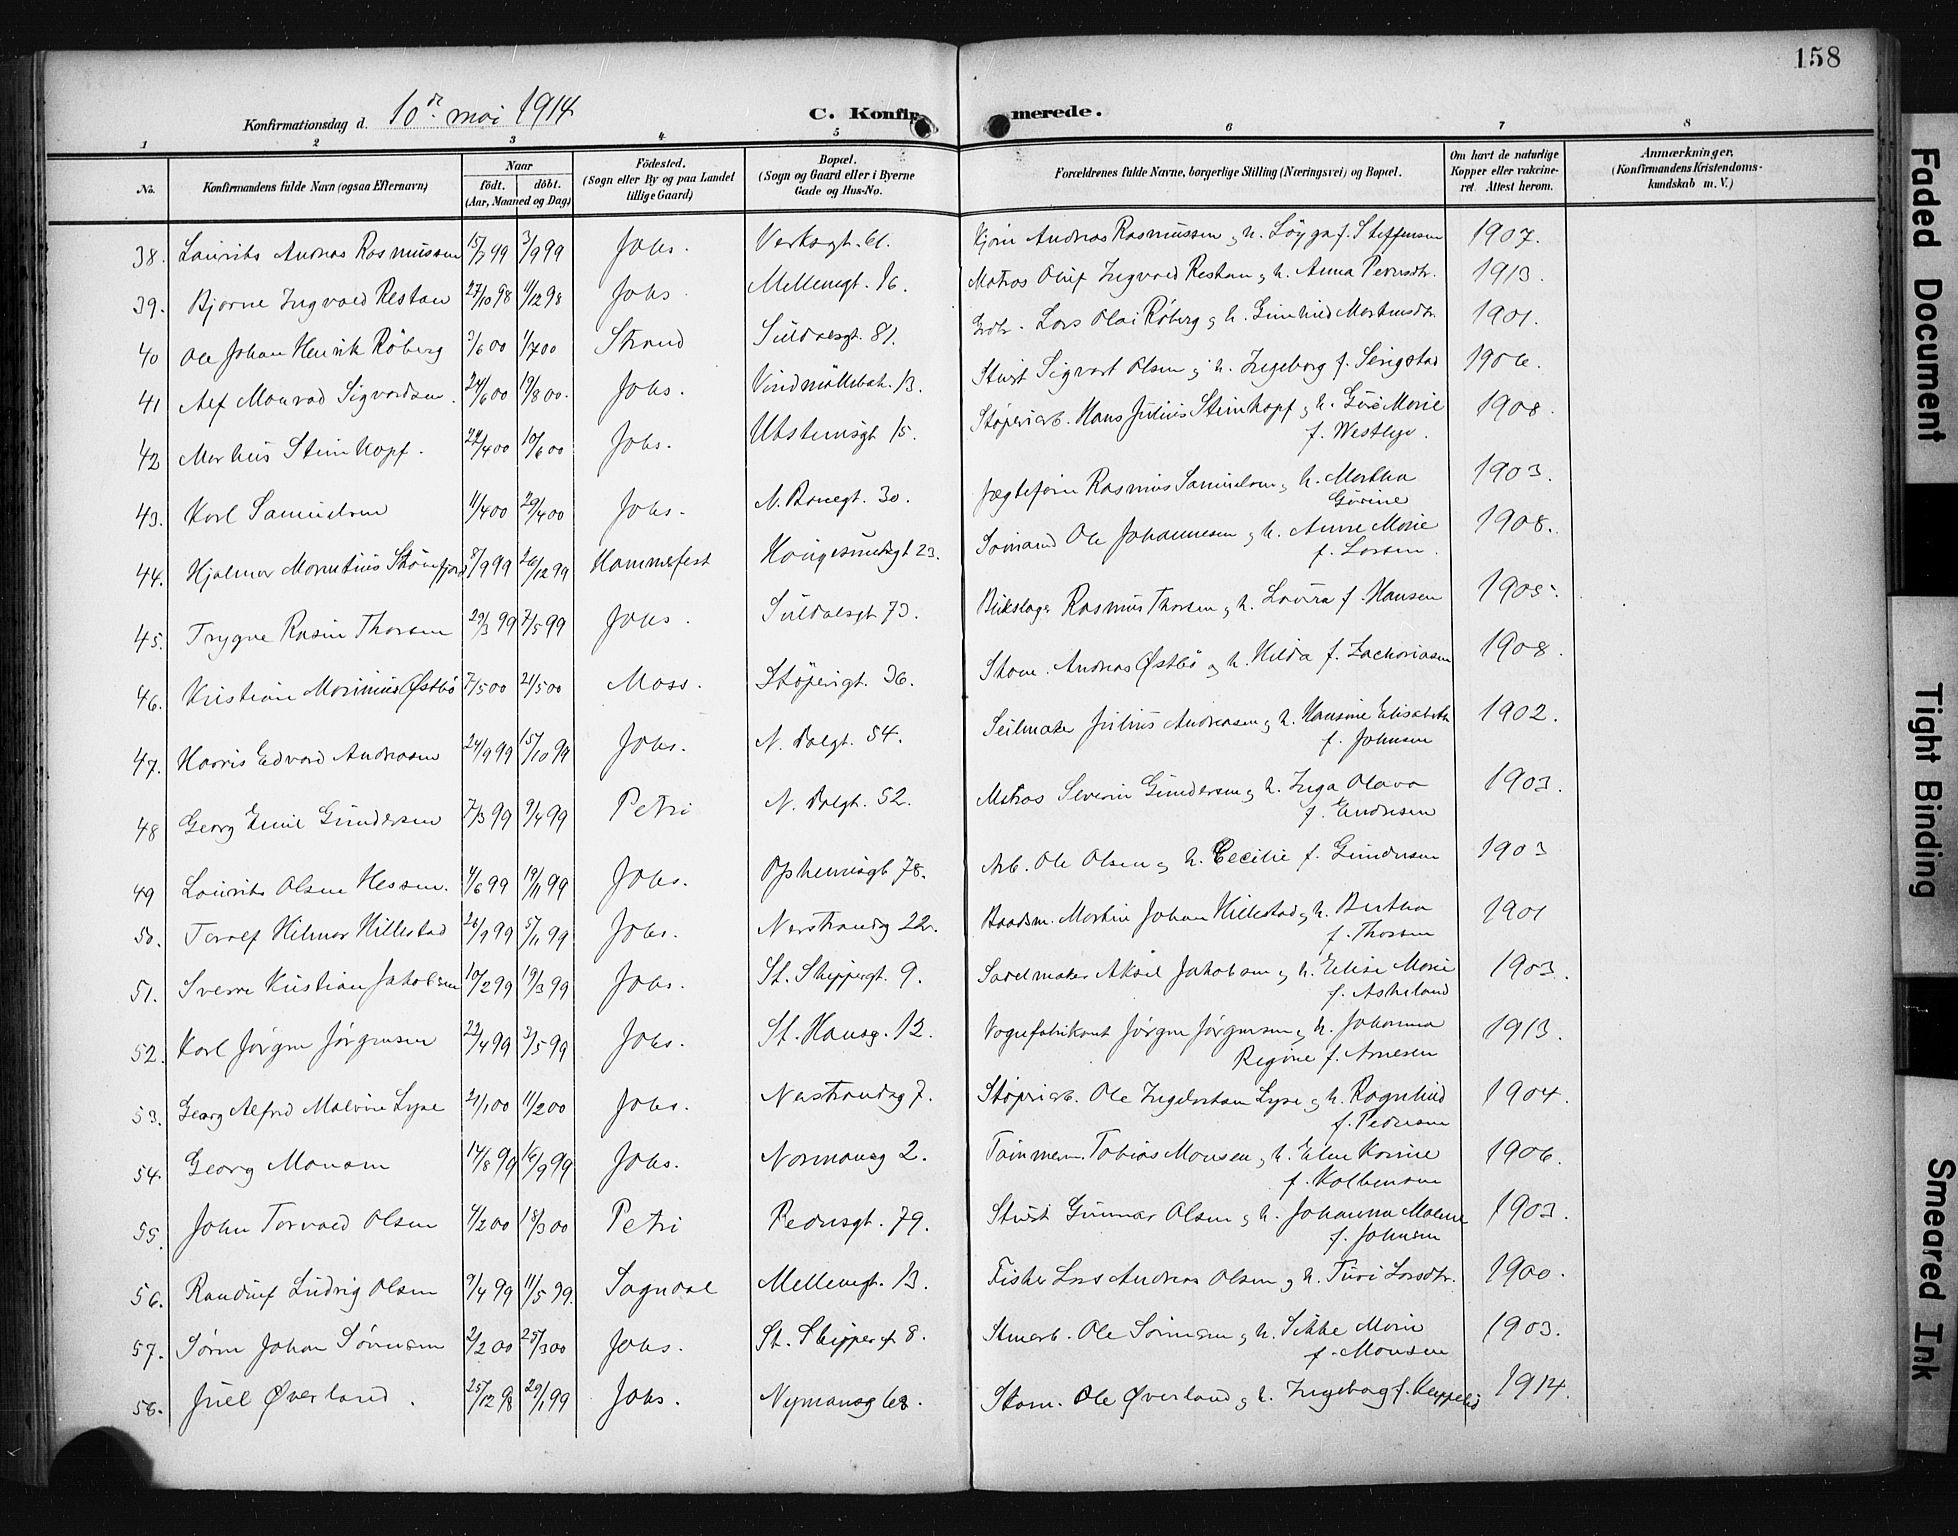 158
Konfirmationsdag d. 10de mai 1914 C. Konfirmerede.
1 2 3 4 5 6 7 8
No. Konfirmandens fulde Navn (ogsaa Efternavn) Naar födt. döbt. (Aar, Maaned og Dag) Födested. (Sogn eller By og paa Landet tillige Gaard) Bopæl. (Sogn og Gaard eller i Byerne Gade og Hus-No. Forældrenes fulde Navne, borgerlige Stilling (Næringsvei) og Bopæl. Om havt de naturlige Kopper eller vakcineret. Attest herom. Anmærkninger, (Konfirmandens Kristendomskundskab m. V.)
38. Laurits Andreas Rasmussen 15/7 99 3/9 99 Johs. Verksgt. 61. Andreas Rasmussen og h. f. Steffensen 1907.
39. Bjarne Ingvald Restan 27/10 98 11/12 98 Johs. Mellemgt. 16. Matros Oluf Ingvald Restan og h. Anna Pernsdtr. 1913.
40 Ole Johan Henrik Røberg 3/6 00 1/7 00 Strand Suldalsgt. 81. Lars Olai Røberg og h. Gunhild Mortensdtr. 1901.
41 Alf Monrad Sigvardsen. 24/6 00 19/8 00. Johs. Vindmøllebak. 13. Stuert Sigvart Olsen og h. Ingeborg f. Serigstad 1906.
42 Markus Steinkopf. 22/4 00 10/6 00 Johs. Utstensgt 15. Støperiarb. Hans Julius Steinkopf og h. Marie
f. Westlye. 1908.
43. Karl Samuelsen 11/4 00 29/4 00 Johs. N. Banegt. 30. Jægtefører Rasmus Samuelsen og h. Martha
Gurine 1903.
44. Hjalmar 8/9 99 26/12 99 Hammerfest Haugesundsgt 23. Sømand Ole Johannesen og h. Anne Marie
f. Larsen. 1908.
45. Trygve Rasin Thorsen 29/3 99 7/5 99 Johs. Suldalsgt. 73. Blikslager Rasmus Thorsen og h. Laura f. Hansen 1905.
46. Kristian Marinius Østbø 7/5 00 21/5 00 Moss. Støperigt. 36. Andreas Østbø og h. Hilda f. Zachariasen 1908.
47. Harris Edvard Andreasen 24/9 99 15/10 99 Johs. N. Dalgt. 54. Seilmaker Julius Andreasen og h. Hansine Elisabeth
f. Johnsen 1902.
48 Georg Emil Gundersen 7/3 99 9/4 99 Petri N. Dalgt. 52. Matros Severin Gundersen og h. Inga Olava
f. Endresen 1903.
49 Laurits Olsen Hessen. 4/6 99 19/11 99 Johs. Ophemsgt 78. Arb. Ole Olsen og h. Cecilie f. Gundersen 1903
50. Toralf Hilmar Hillestad 26/9 99 5/11 99 Johs. Nerstrandsg 22. Baadsm. Martin Johan Hillestad og h. Bertha
f. Thorsen 1901
51. Sverre Kristian Jakobsen 10/2 99 19/3 99 Johs. St. Skippergt. 9. Sadelmaker Aksel Jakobsen og h. Elise Marie
f. Askeland 1903.
52. Karl Jørgen Jørgensen 22/4 99 3/5 99 Johs. St. Hansg. 12. Vognfabrikant Jørgen Jørgensen og h. Johanna
Regine f. Arnesen 1913.
53. Georg Alfred Malvin Lyse 21/1 00 11/2 00 Johs. Nerstrandsg 7. Støperiarb. Ole Lyse og h. Ragnhild
f. Pedersen 1904.
54. Georg Monsen 14/8 99 16/9 99 Johs. Normansg 2. Tømmerm. Tobias Monsen og h. Karine
f. Kolbensen 1906.
55. John Torvald Olsen 4/2 00 18/3 00 Petri Pedersgt. 79. Stuert Gunnar Olsen og h. Johanna
f. Johnsen 1903.
56. Randulf Ludvig Olsen 9/4 99 11/5 99. Sogndal Mellemgt. 13. Fisker Lars Andreas Olsen og h. Turi Larsdtr. 1900.
57. Søren Johan Sørensen 2/2 00 25/3 00 Johs. St. Skippergt 8. Stuearb. Ole Sørensen og h. Sikke Marie
f. Monsen 1903.
58. Juel Øverland. 25/12 98 29/1 99 Johs. Nymansg 68. Ole Øverland og h. Ingeborg f. 1914.
Faded Document
Tight Binding
Smeared Ink